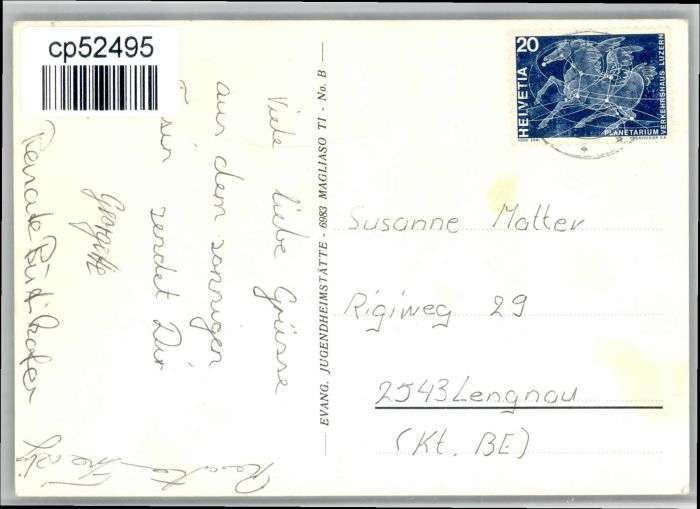 cp52495
20
HELVETIA
PLANETARIUM
VERKEHRSHAUS LUZERN
EVANG. JUGENDHEIMSTÄTTE - 6983 MAGLIASO TI - No. B
Viele liebe Grüsse
aus dem sonnigen
sendet Dir
Renate
Susanne Matter
Rigiweg 29
2543 Lengnau
(Kt. BE)